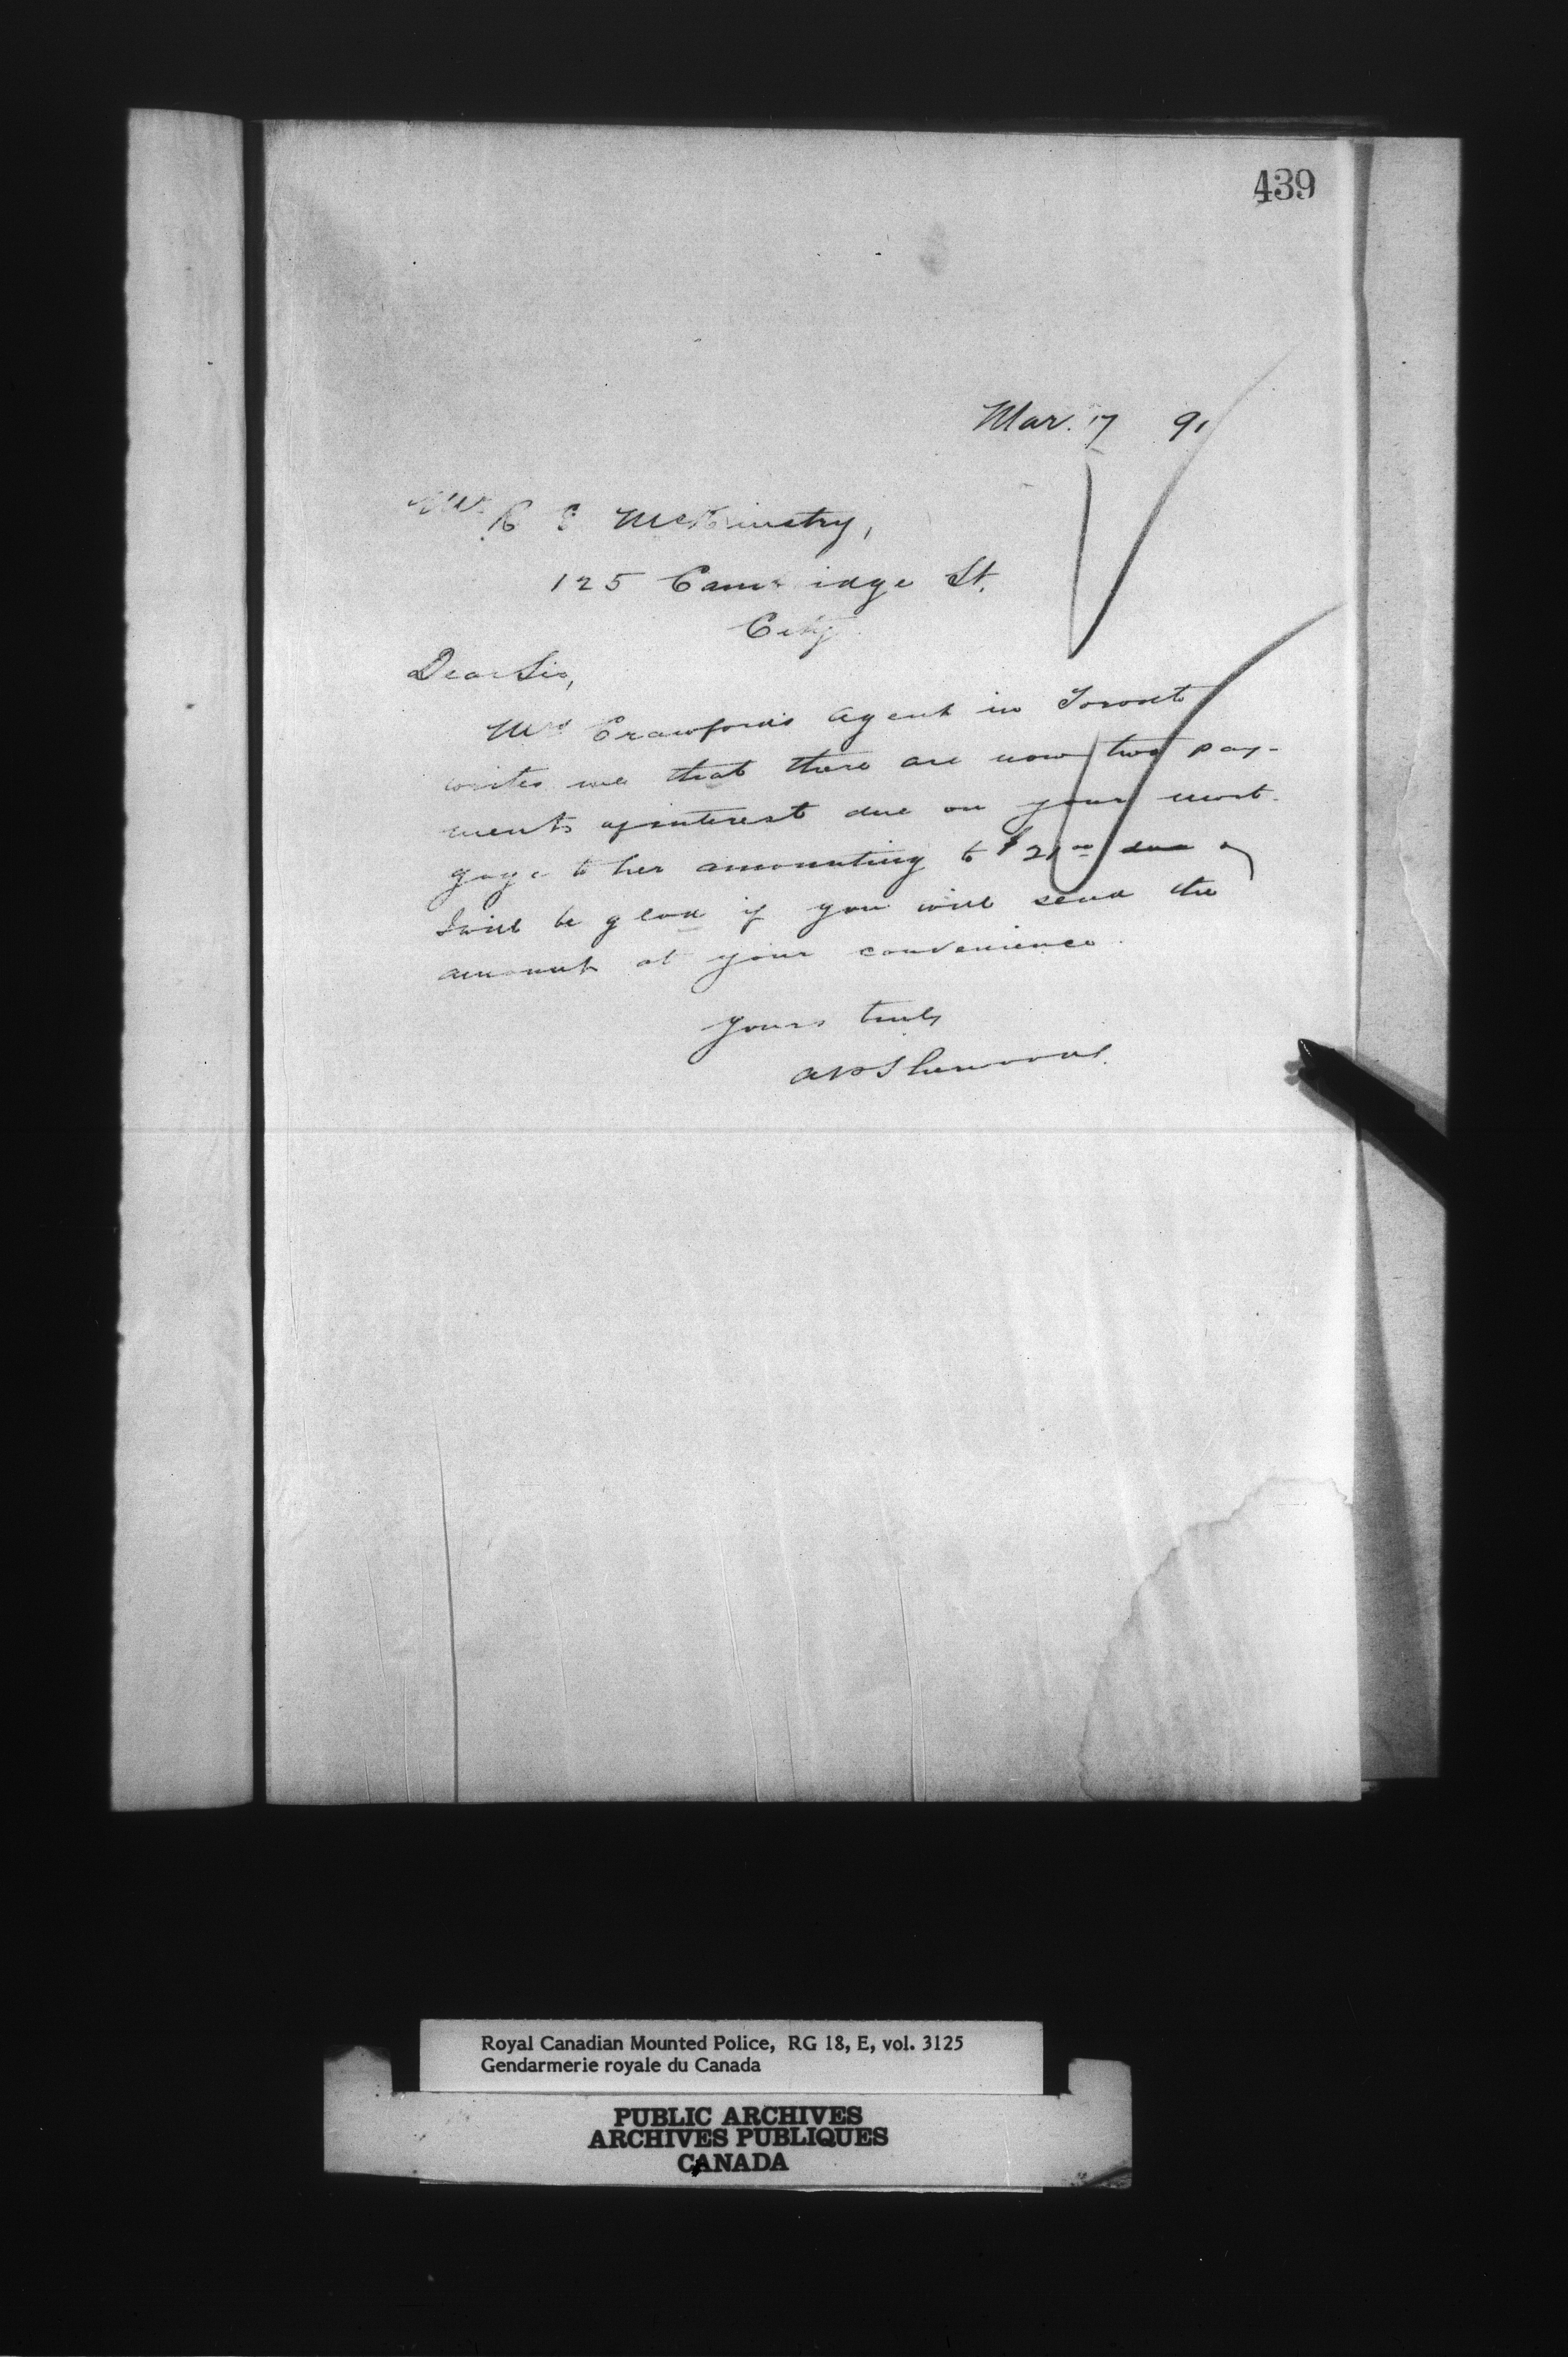 439
Mar. 17 91
Mr R E McKinstry,
125 Cambridge St.
City
Dear Sir,
Mrs Crawford's agent in Toronto
writes me that there are now two pay-
ments of interest due on your mort-
gage to her amounting to $21.00
I will be glad if you will send the
amount at your convenience.
Yours truly
A P Sherwood
Royal Canadian Mounted Police, RG 18, E, vol. 3125
Gendarmerie royale du Canada
PUBLIC ARCHIVES
ARCHIVES PUBLIQUES
CANADA